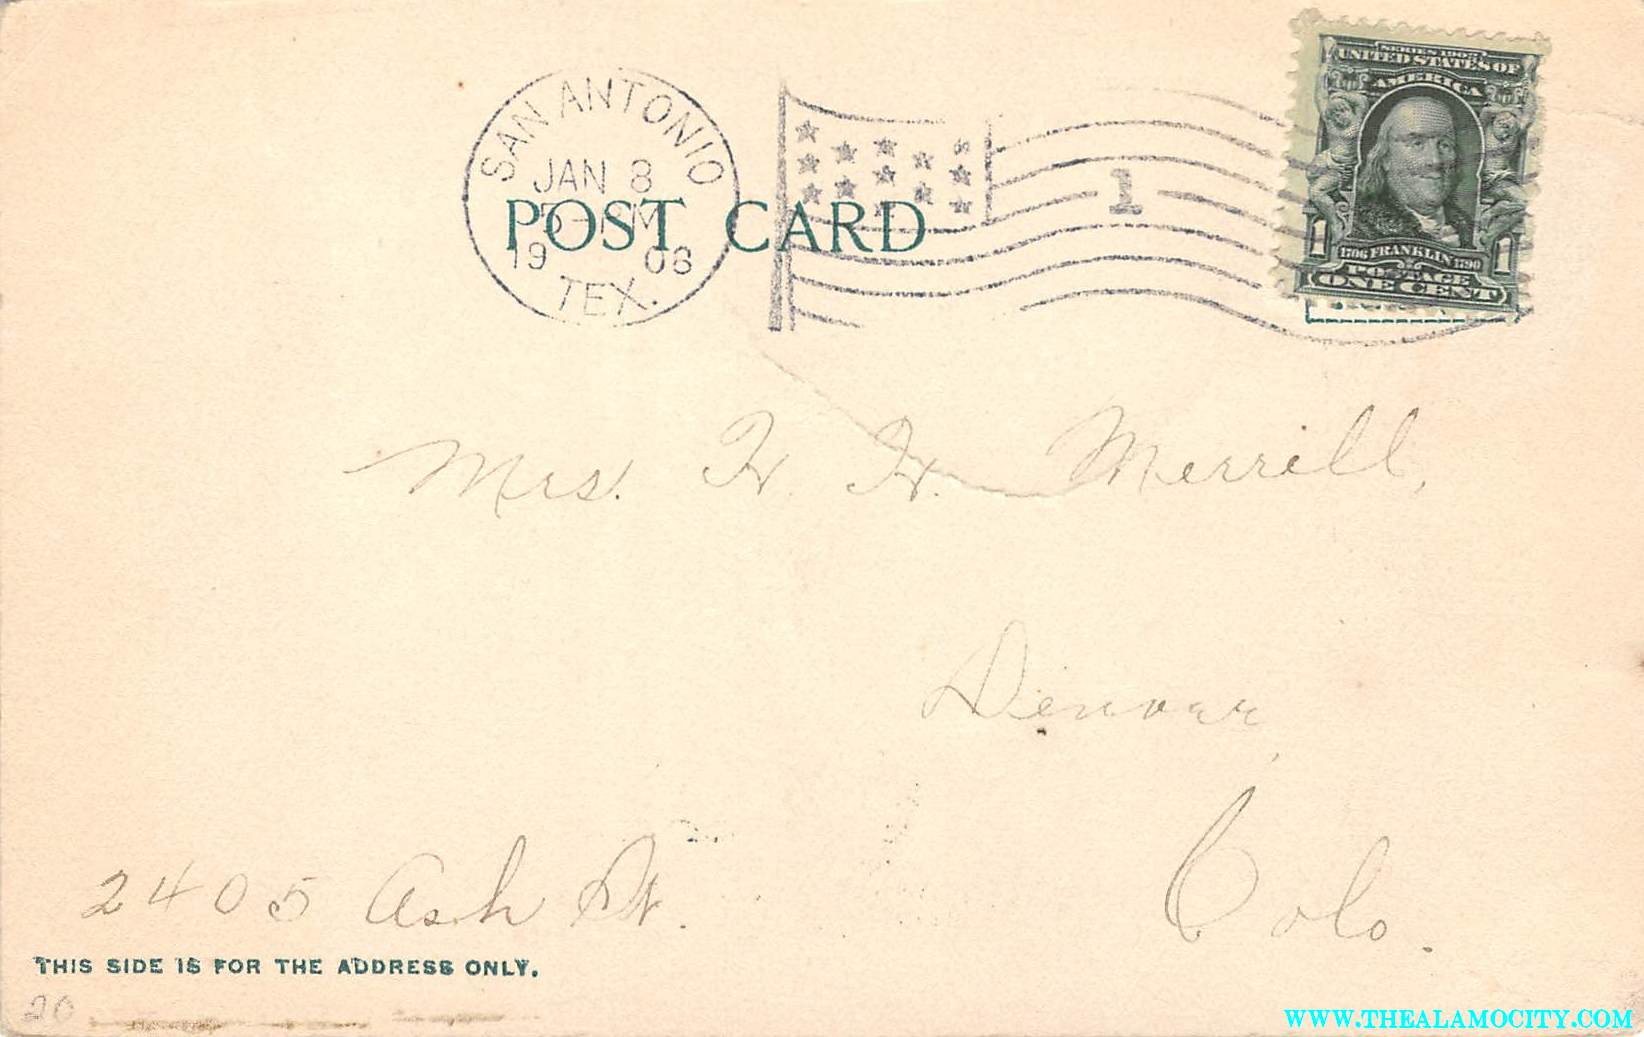 SERIES 1902
UNITED STATES OF
AMERICA
SAN ANTONIO
JAN 8
19 08
TEX.
1
POST CARD
1 1
1706 FRANKLIN 1790
POSTAGE
ONE CENT
Mrs. H. H. Merrill,
Denver,
Colo.
2405 Ash St.
THIS SIDE IS FOR THE ADDRESS ONLY.
20
WWW.THEALAMOCITY.COM